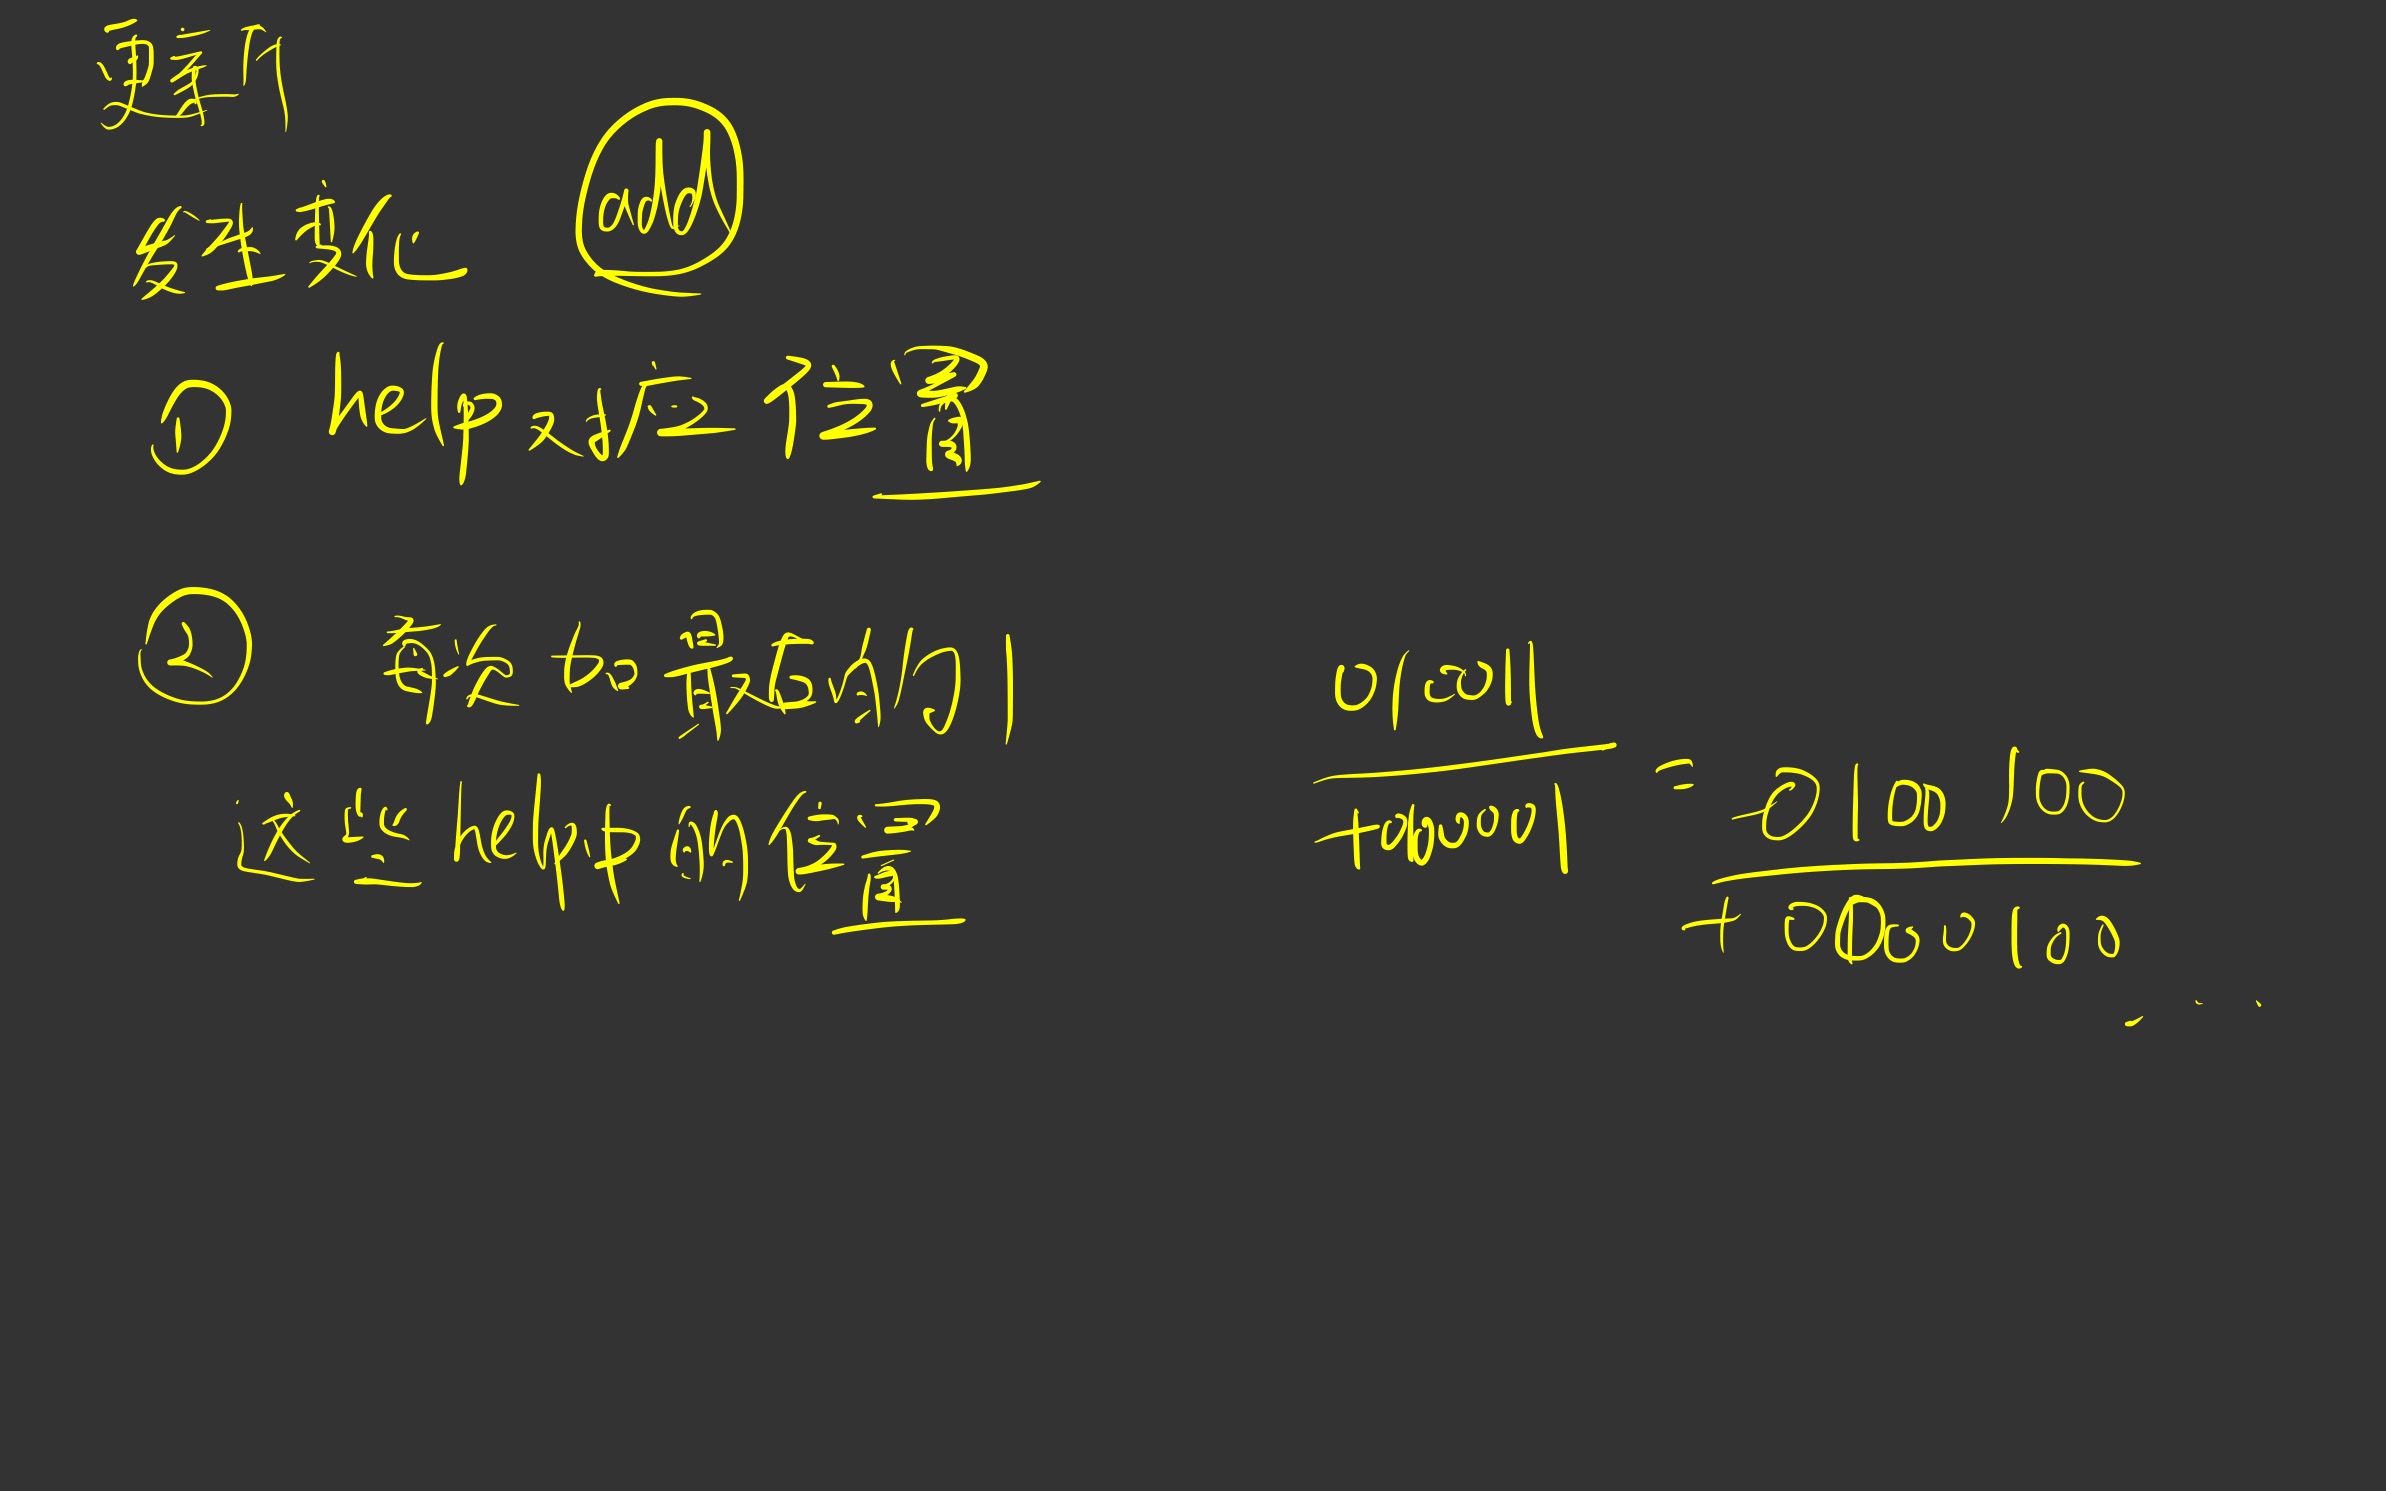 更新
发生变化 add
① help对应位置
② 需要加最后的1
这些help中的位置
010011
+000001
= 010 100
+ 0000 100
...